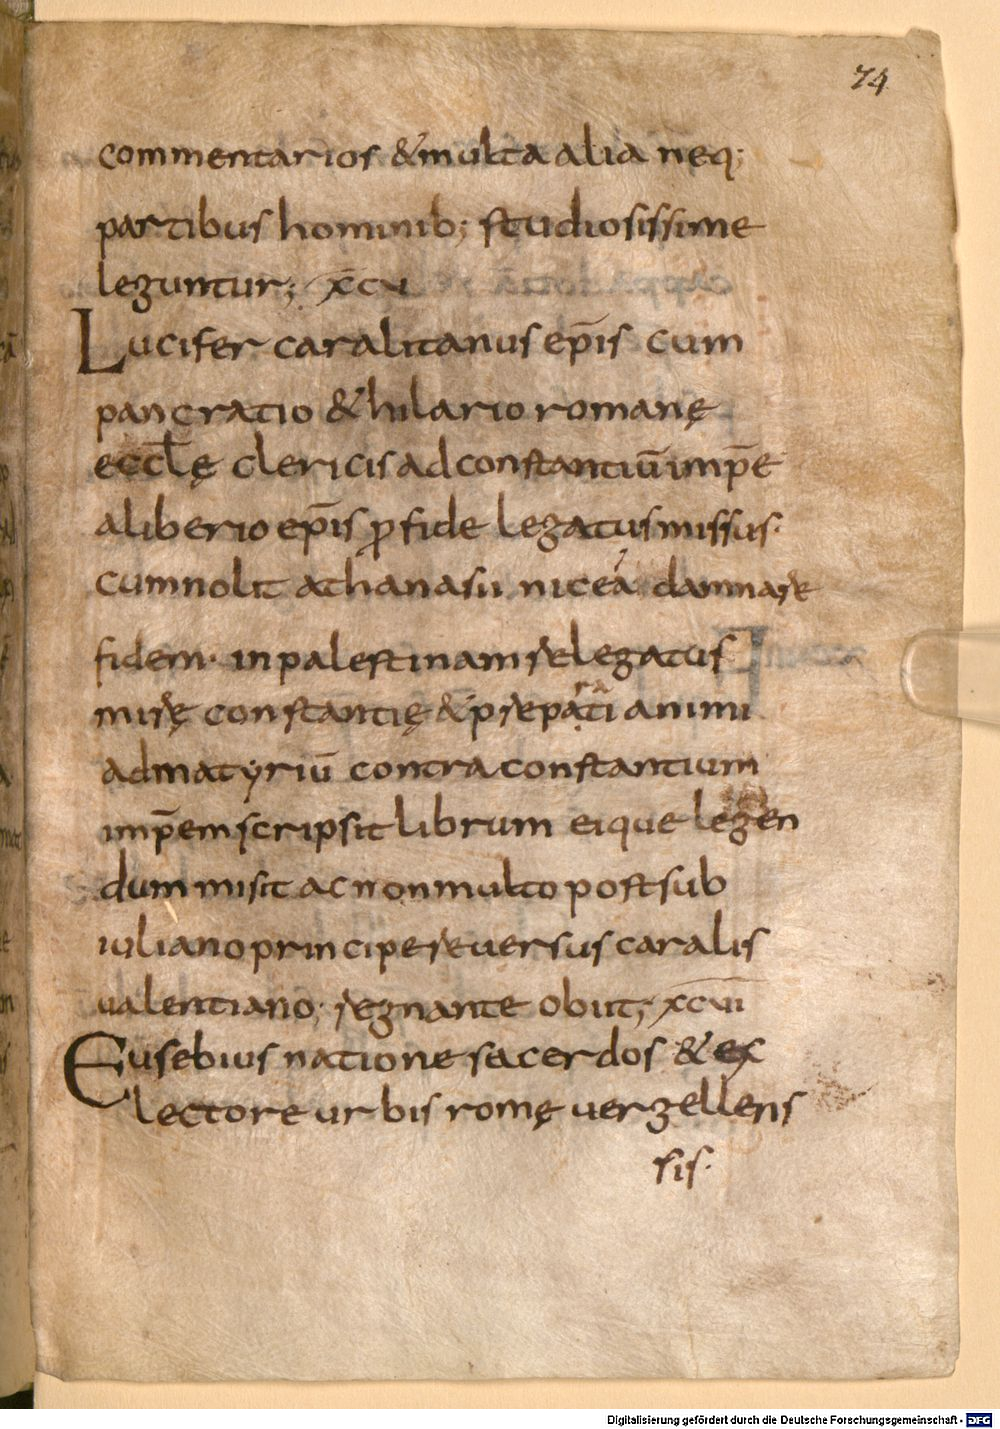 74
commentarios & multa alia neq;
partibus hominib; studiosissime
leguntur; xcvi
Lucifer caralitanus ep̄is cum
pancratio & hilario romanę
eccl̄ę clericis ad constantiū imp̄e
a liberio ep̄is ꝓ fide legatus missus·
cum nolit athanasii niceá damnare
fidem· in palestinam relegatus
mirę constantię & prępati animi
rā
ad matyriū contra constantium
imp̄em scripsit librum eique legen
dum misit ac non multo post sub
iuliano principe reuersus caralis
ualentiano; regnante obiit; xcvii
Eusebius natione sacerdos & ex
lectore urbis romę uerzellens
sis·
Digitalisierung gefördert durch die Deutsche Forschungsgemeinschaft - DFG